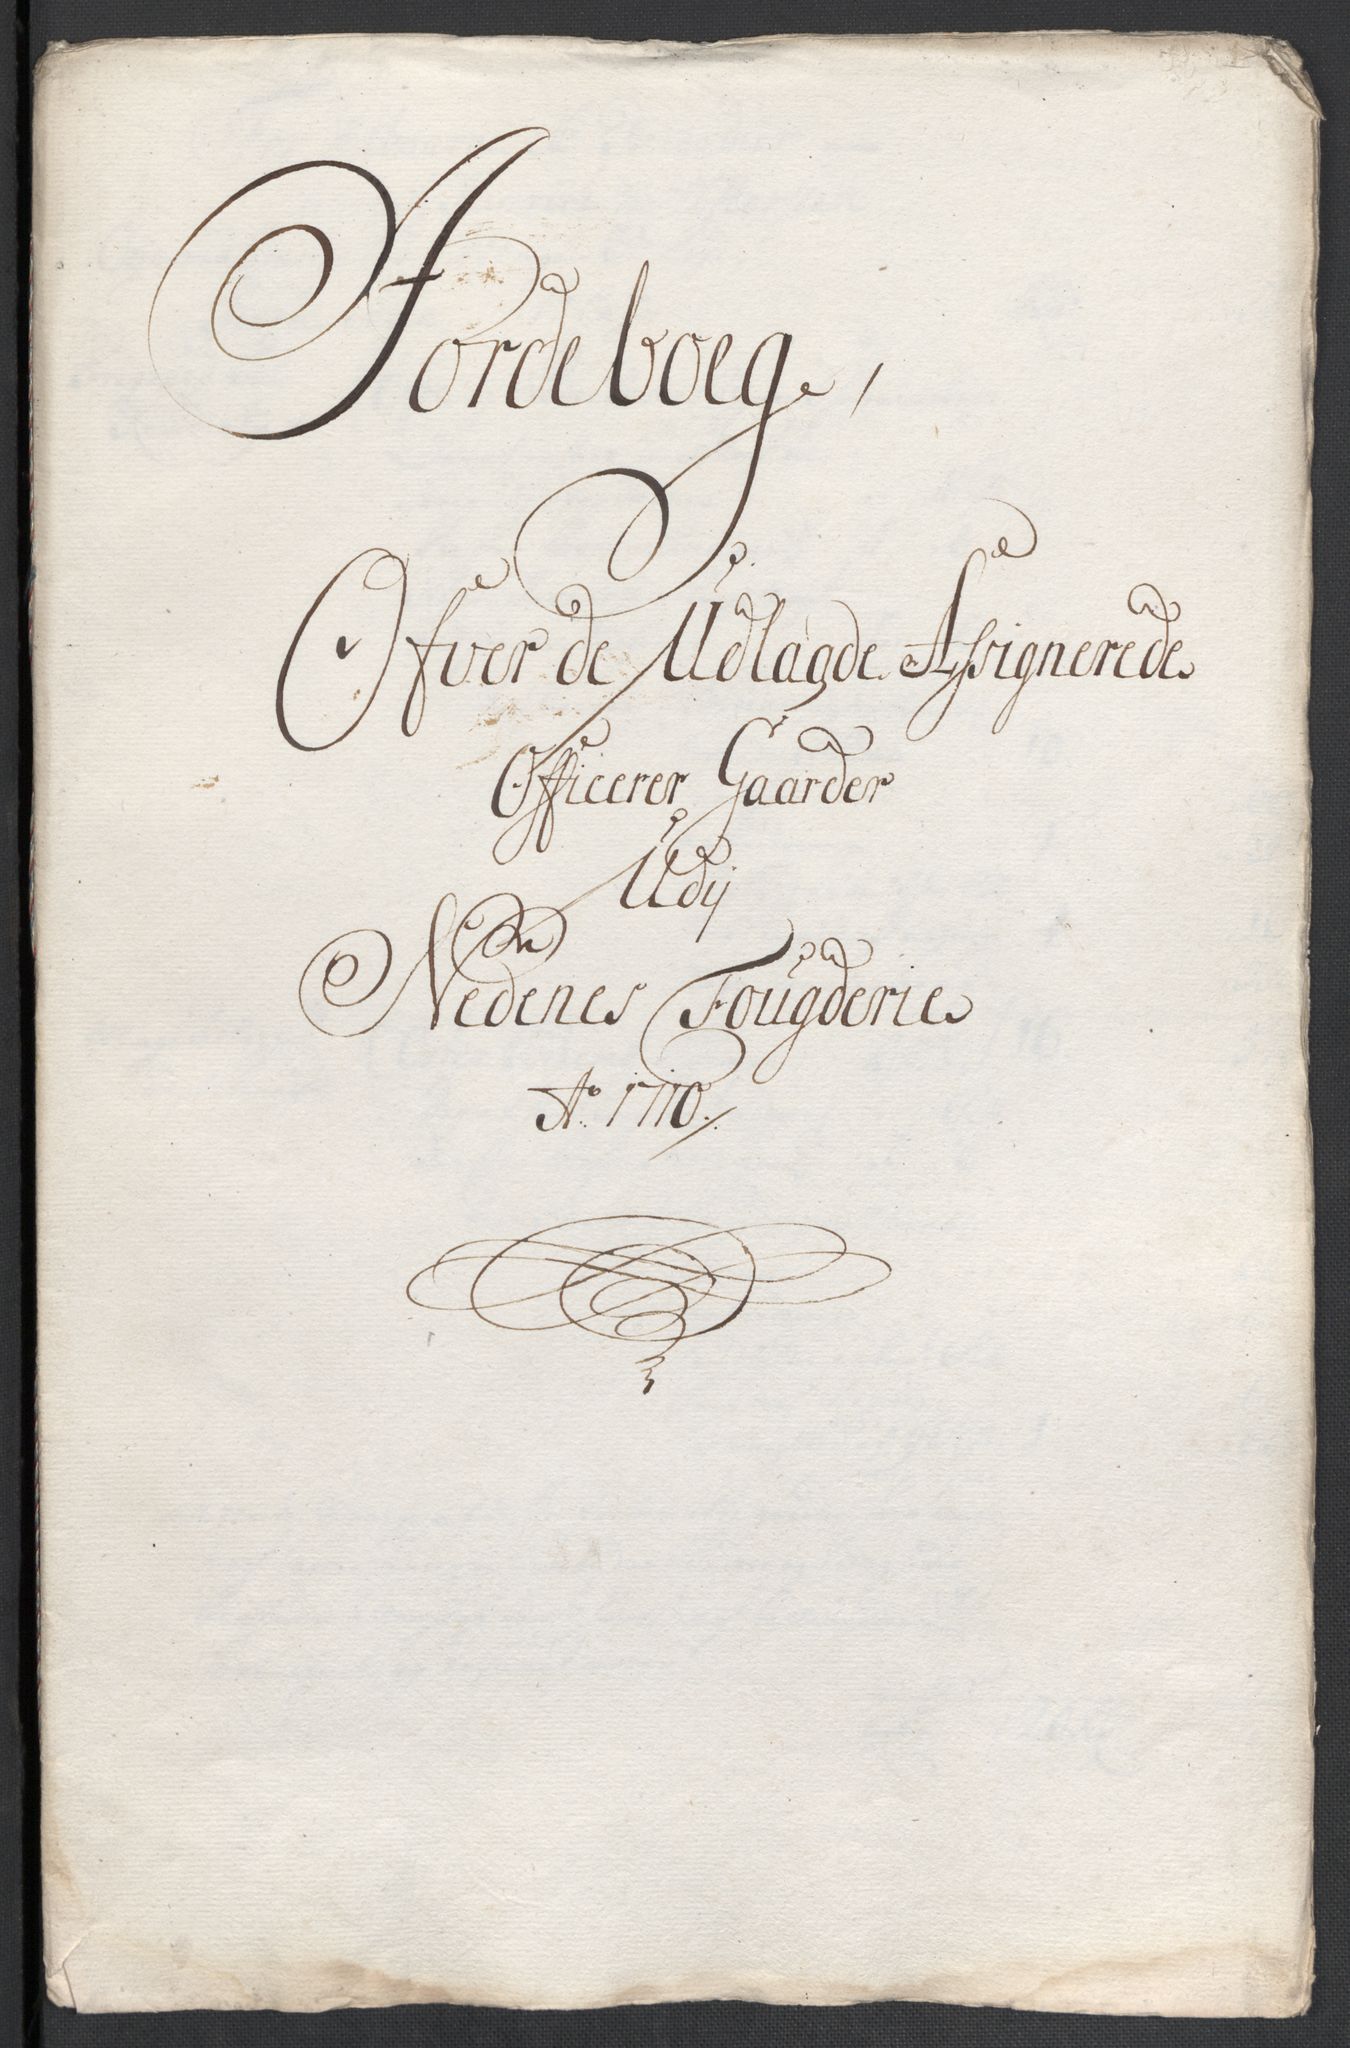 Jordeboeg,
Ofver de Udlagde Assignerede
Officerer Gaarder
Udij
Nedenes Fougderie
Ao 1710.